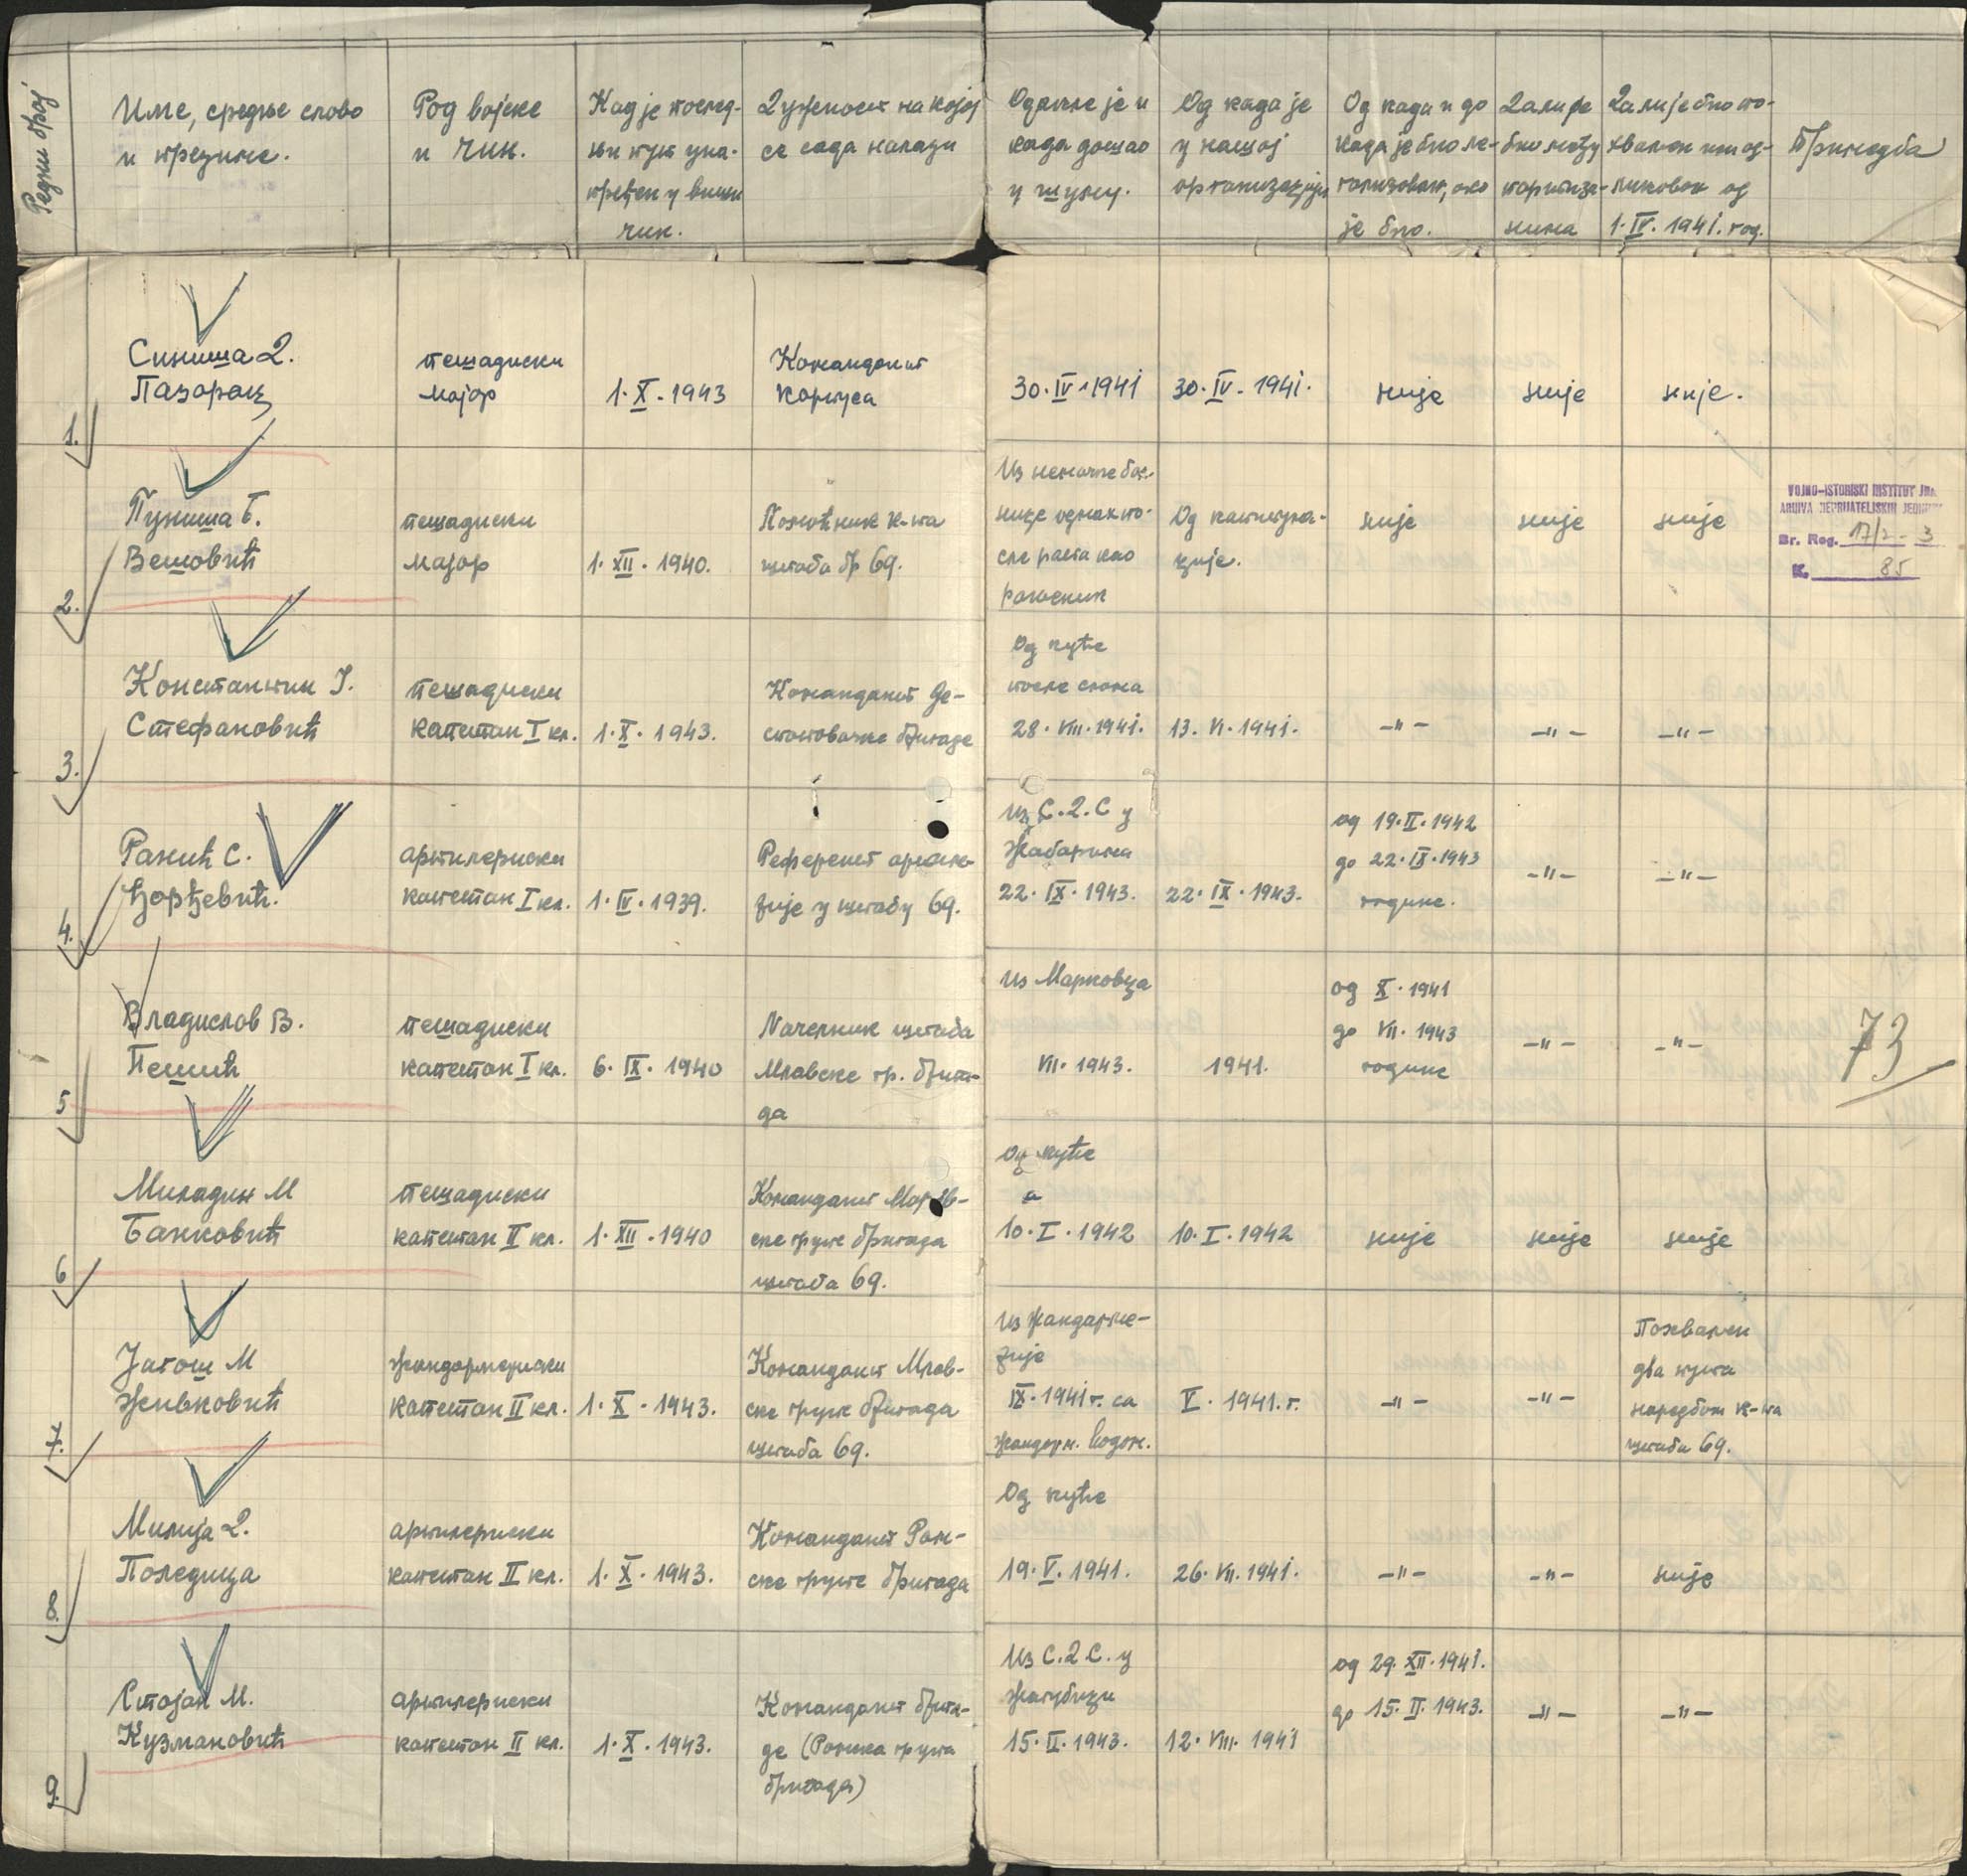 Редни број
Име, средње слово
и презиме.
Род војске
и чин.
Кад је послед-
њи пут уна-
пређен у виши
чин.
Дужност на којој
се сада налази
Одакле је и
када дошао
у шуму.
Од када је
у нашој
организацији
Од када и до
када је био ле-
гализован, ако
је био.
Да ли је
био међу
партиза-
нима
Да ли је био по-
хваљен или од-
ликован од
1.IV.1941.год.
Примедба
1.
Синиша Д.
Пазарац
пешадиски
мајор
1.X.1943
Командант
Корпуса
30.IV.1941
30.IV.1941.
није
није
није.
2.
Пуниша Б.
Вешовић
пешадиски
мајор
1.XII.1940.
Помоћник к-та
штаба бр 69.
Из немачке бол-
нице одмах по-
сле рата као
рањеник
Од капитула-
ције.
није
није
није
VOJNO-ISTORISKI INSTITUT JNA
ARHIVA NEPRIJATELJSKIH JEDINICA
Br. Reg. 17/2-3
K. 85
3.
Константин Ј.
Стефановић
пешадиски
капетан I кл.
1.X.1943.
Командант Де-
спотовачке бригаде
Од куће
после слома
28.VIII.1941.
13.VI.1941.
-"-
-"-
-"-
4.
Ранић С.
Ђорђевић.
артилериски
капетан I кл.
1.IV.1939.
Референт артиље-
рије у штабу 69.
из С.Д.С у
Жабарима
22.IX.1943.
22.IX.1943.
од 19.II.1942
до 22.IX.1943
године.
-"-
-"-
5
Владислов В.
Пешић
пешадиски
капетан I кл.
6.IX.1940
Начелник штаба
Млавске гр. брига-
да
из Марковца
VII.1943.
1941.
од X.1941
до VII.1943
године
-"-
-"-
73
6
Миладин М
Банковић
пешадиски
капетан II кл.
1.XII.1940
Командант Морав-
ске групе бригада
штаба 69.
Од куће
10.I.1942
10.I.1942
није
није
није
7.
Јагош М
Живковић
жандармериски
капетан II кл.
1.X.1943.
Командант Млав-
ске групе бригада
штаба 69.
из жандарме-
рије
IX.1941г. са
жандарм. водом.
V.1941.г.
-"-
-"-
Похваљен
два пута
наредбом к-та
штаба 69.
8.
Милија Д.
Поледица
артилериски
капетан II кл.
1.X.1943.
Командант Рам-
ске групе бригада
Од куће
19.V.1941.
26.VII.1941.
-"-
-"-
није
9.
Стојан М.
Кузмановић
артилериски
капетан II кл.
1.X.1943.
Командант брига-
де (Рамска група
бригада)
Из С.Д.С. у
Жагубици
15.II.1943.
12.VIII.1941
од 29.XII.1941.
до 15.II.1943.
-"-
-"-